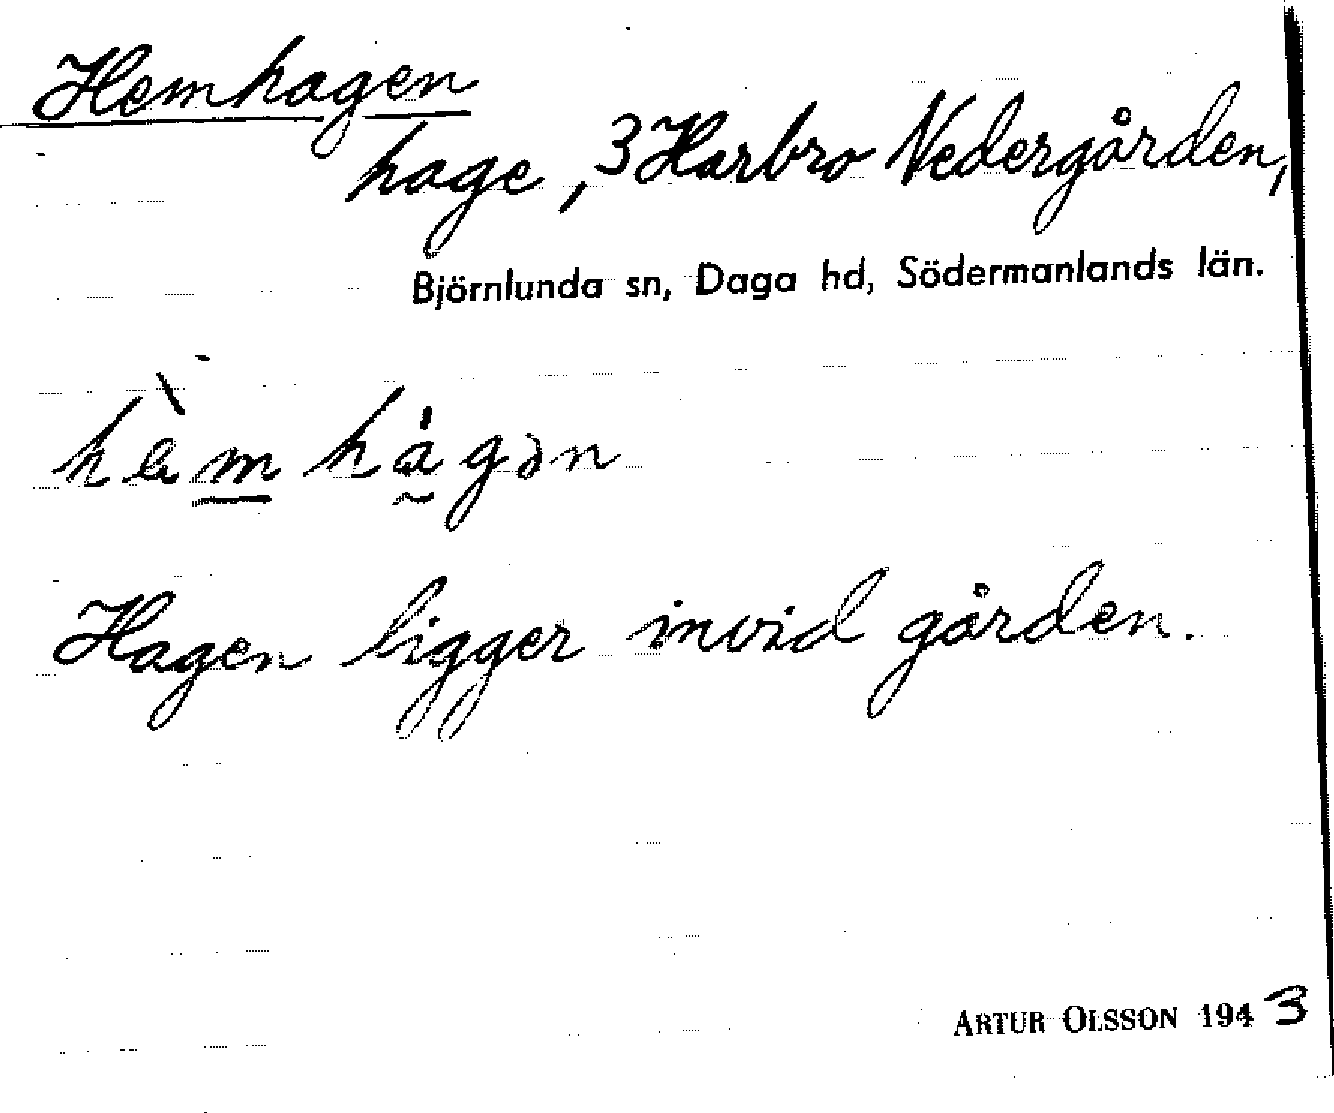 Hemhagen
hage, 3 Harbro Nedergården,
Björnlunda sn, Daga hd, Södermanlands län.
hèmhágən
Hagen ligger invid gården.
ARTUR OLSSON 1943